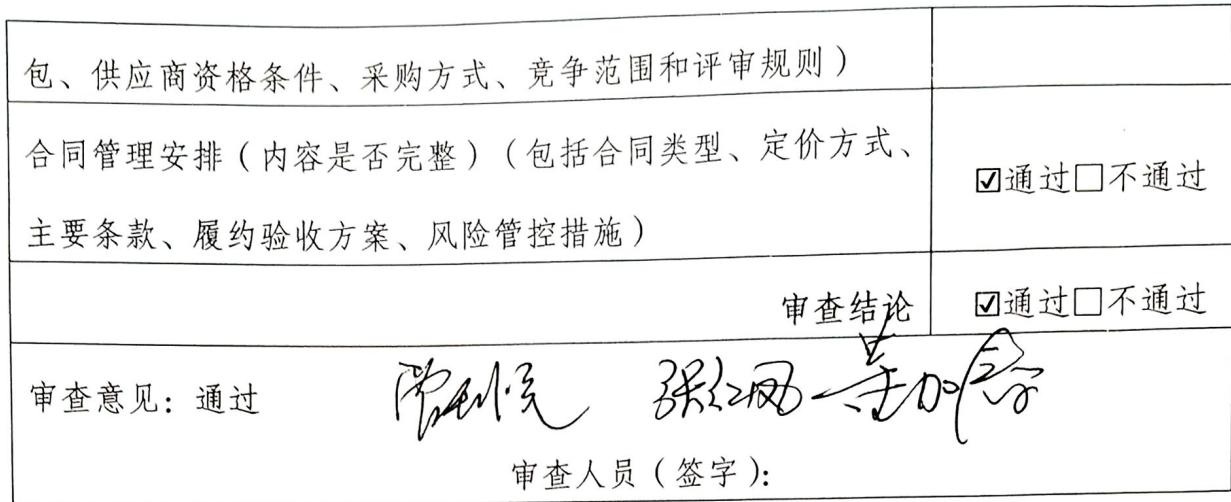 包、供应商资格条件、采购方式、竞争范围和评审规则）
合同管理安排（内容是否完整）（包括合同类型、定价方式、
主要条款、履约验收方案、风险管控措施）
☑通过□不通过
审查结论
☑通过□不通过
审查意见：通过
张红凤
审查人员（签字）：